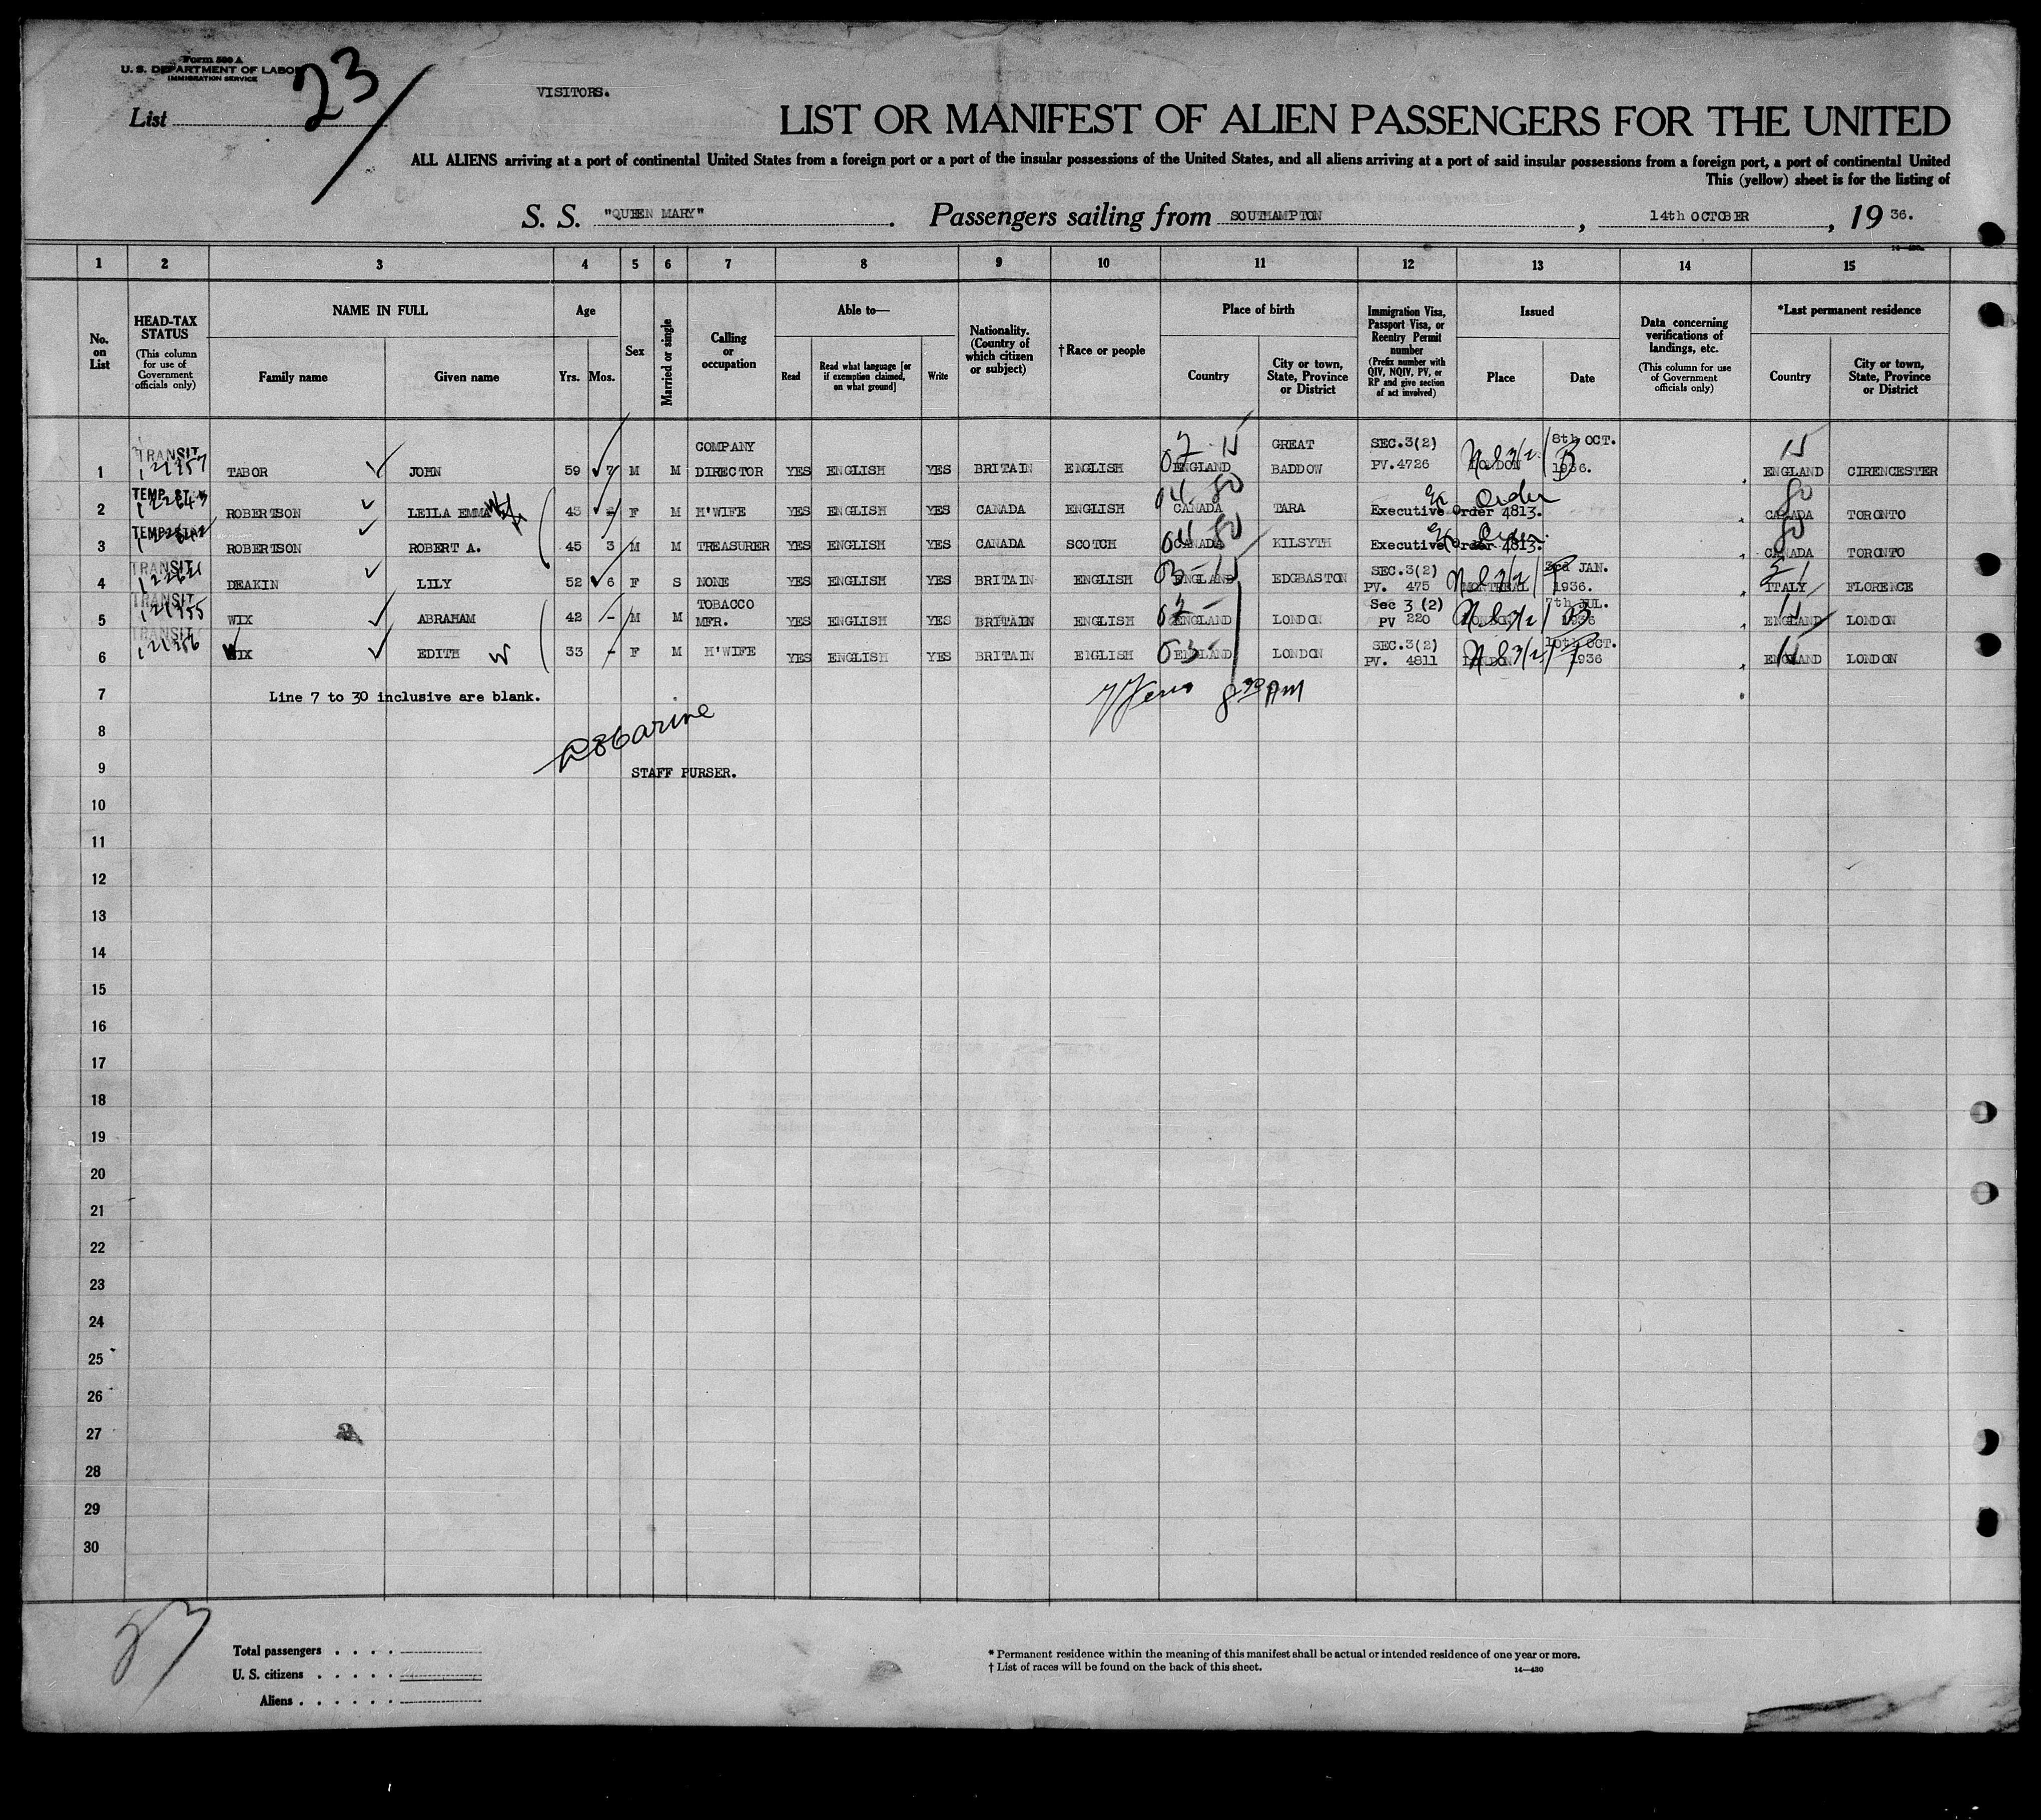 Form 500 A
U. S. DEPARTMENT OF LABOR
IMMIGRATION SERVICE
List 23
VISITORS.
LIST OR MANIFEST OF ALIEN PASSENGERS FOR THE UNITED
ALL ALIENS arriving at a port of continental United States from a foreign port or a port of the insular possessions of the United States, and all aliens arriving at a port of said insular possessions from a foreign port, a port of continental United
This (yellow) sheet is for the listing of
S. S. "QUEEN MARY". Passengers sailing from SOUTHAMPTON, 14th OCTOBER, 19 36.
1 2 3 4 5 6 7 8 9 10 11 12 13 14 15
No. on List
HEAD-TAX STATUS (This column for use of Government officials only)
NAME IN FULL
Family name Given name
Age
Yrs. Mos.
Sex
Married or single
Calling or occupation
Able to—
Read Read what language [or if exemption claimed, on what ground] Write
Nationality. (Country of which citizen or subject)
†Race or people
Place of birth
Country City or town, State, Province or District
Immigration Visa, Passport Visa, or Reentry Permit number (Prefix number with QIV, NQIV, PV, or RP and give section of act involved)
Issued
Place Date
Data concerning verifications of landings, etc. (This column for use of Government officials only)
*Last permanent residence
Country City or town, State, Province or District
1 TRANSIT TABOR JOHN 59 7 M M COMPANY DIRECTOR YES ENGLISH YES BRITAIN ENGLISH ENGLAND GREAT BADDOW SEC.3(2) PV.4726 LONDON 8th OCT. 1936. ENGLAND CIRENCESTER
2 TEMP. ROBERTSON LEILA EMMA 43 F M H'WIFE YES ENGLISH YES CANADA ENGLISH CANADA TARA Ex Order Executive Order 4813. CANADA TORONTO
3 TEMP. ROBERTSON ROBERT A. 45 3 M M TREASURER YES ENGLISH YES CANADA SCOTCH CANADA KILSYTH Ex Order Executive Order 4813. CANADA TORONTO
4 TRANSIT DEAKIN LILY 52 6 F S NONE YES ENGLISH YES BRITAIN ENGLISH ENGLAND EDGBASTON SEC.3(2) PV. 475 MONTREAL 3rd JAN. 1936. ITALY FLORENCE
5 TRANSIT WIX ABRAHAM 42 - M M TOBACCO MFR. YES ENGLISH YES BRITAIN ENGLISH ENGLAND LONDON Sec 3 (2) PV 220 LONDON 7th JUL. 1936 ENGLAND LONDON
6 TRANSIT WIX EDITH 33 - F M H'WIFE YES ENGLISH YES BRITAIN ENGLISH ENGLAND LONDON SEC.3(2) PV. 4811 LONDON 10th OCT. 1936 ENGLAND LONDON
7 Line 7 to 30 inclusive are blank. 8 30 AM
8
9 STAFF PURSER.
10
11
12
13
14
15
16
17
18
19
20
21
22
23
24
25
26
27
28
29
30
Total passengers . . . .
U. S. citizens . . . . .
Aliens . . . . . .
* Permanent residence within the meaning of this manifest shall be actual or intended residence of one year or more.
† List of races will be found on the back of this sheet.
14—430